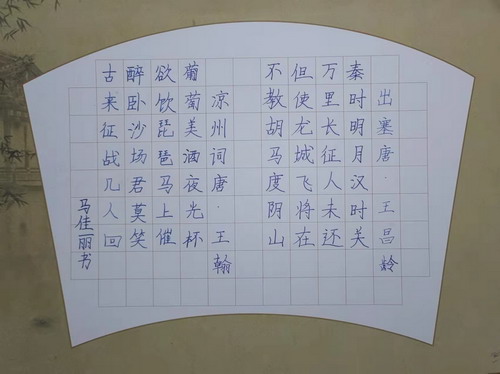 出塞唐·王昌龄
秦时明月汉时关
万里长征人未还
但使龙城飞将在
不教胡马度阴山
凉州词唐·王翰
葡萄美酒夜光杯
欲饮琵琶马上催
醉卧沙场君莫笑
古来征战几人回
马佳丽书